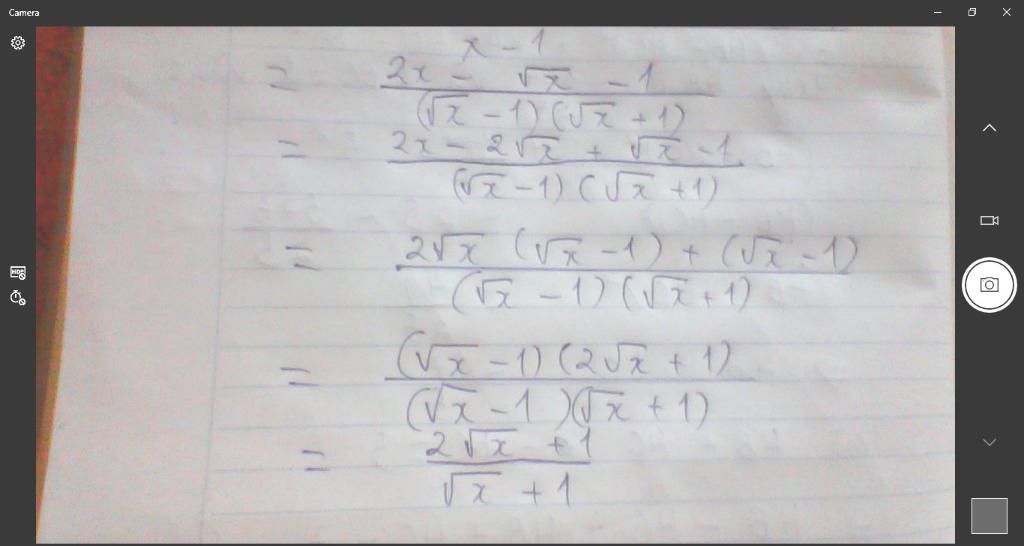 Camera
x - 1
= 2x - √x - 1
(√x - 1)(√x + 1)
= 2x - 2√x + √x - 1
(√x - 1)(√x + 1)
= 2√x (√x - 1) + (√x - 1)
(√x - 1)(√x + 1)
= (√x - 1)(2√x + 1)
(√x - 1)(√x + 1)
= 2√x + 1
√x + 1